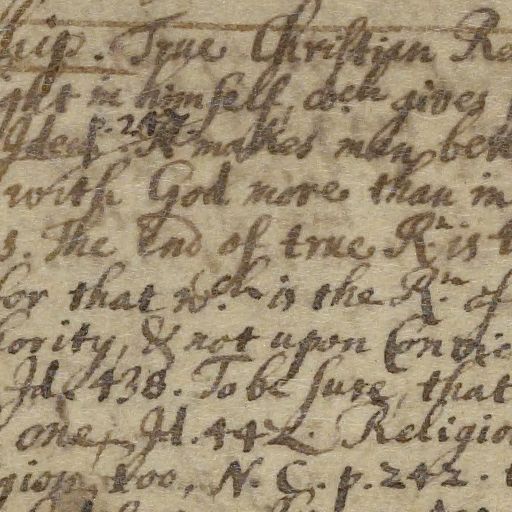 ship. True Christian Re
ght in himself, wch gives
Idem p. 247. It makes men bett
with God more than in
s. The End of true Rn is t
for that wch is the Rn of
hority, & not upon Convic
Id. 438. To be sure, that
one, Id. 442. Religio
gion too, N. C. p. 242.